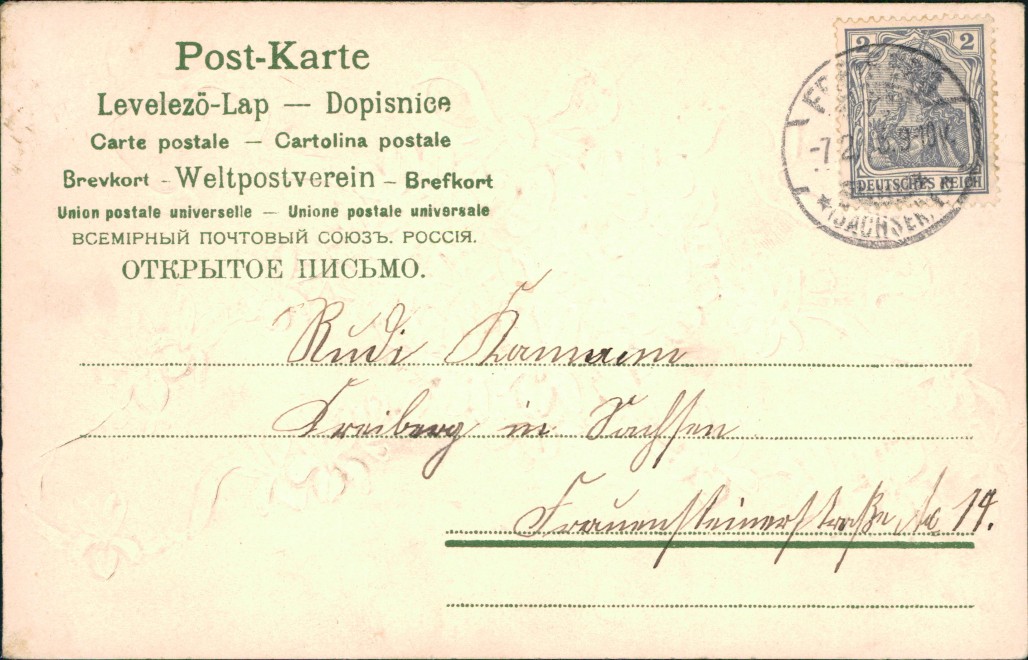 Post-Karte
Levelezö-Lap — Dopisnice
Carte postale — Cartolina postale
Brevkort - Weltpostverein - Brefkort
Union postale universelle — Unione postale universale
ВСЕМІРНЫЙ ПОЧТОВЫЙ СОЮЗЪ. РОССІЯ.
ОТКРЫТОЕ ПИСЬМО.
2 2
DEUTSCHES REICH
(SACHSEN)
Rudi
Freiberg in Sachsen
Frauensteinerstraße No 14.